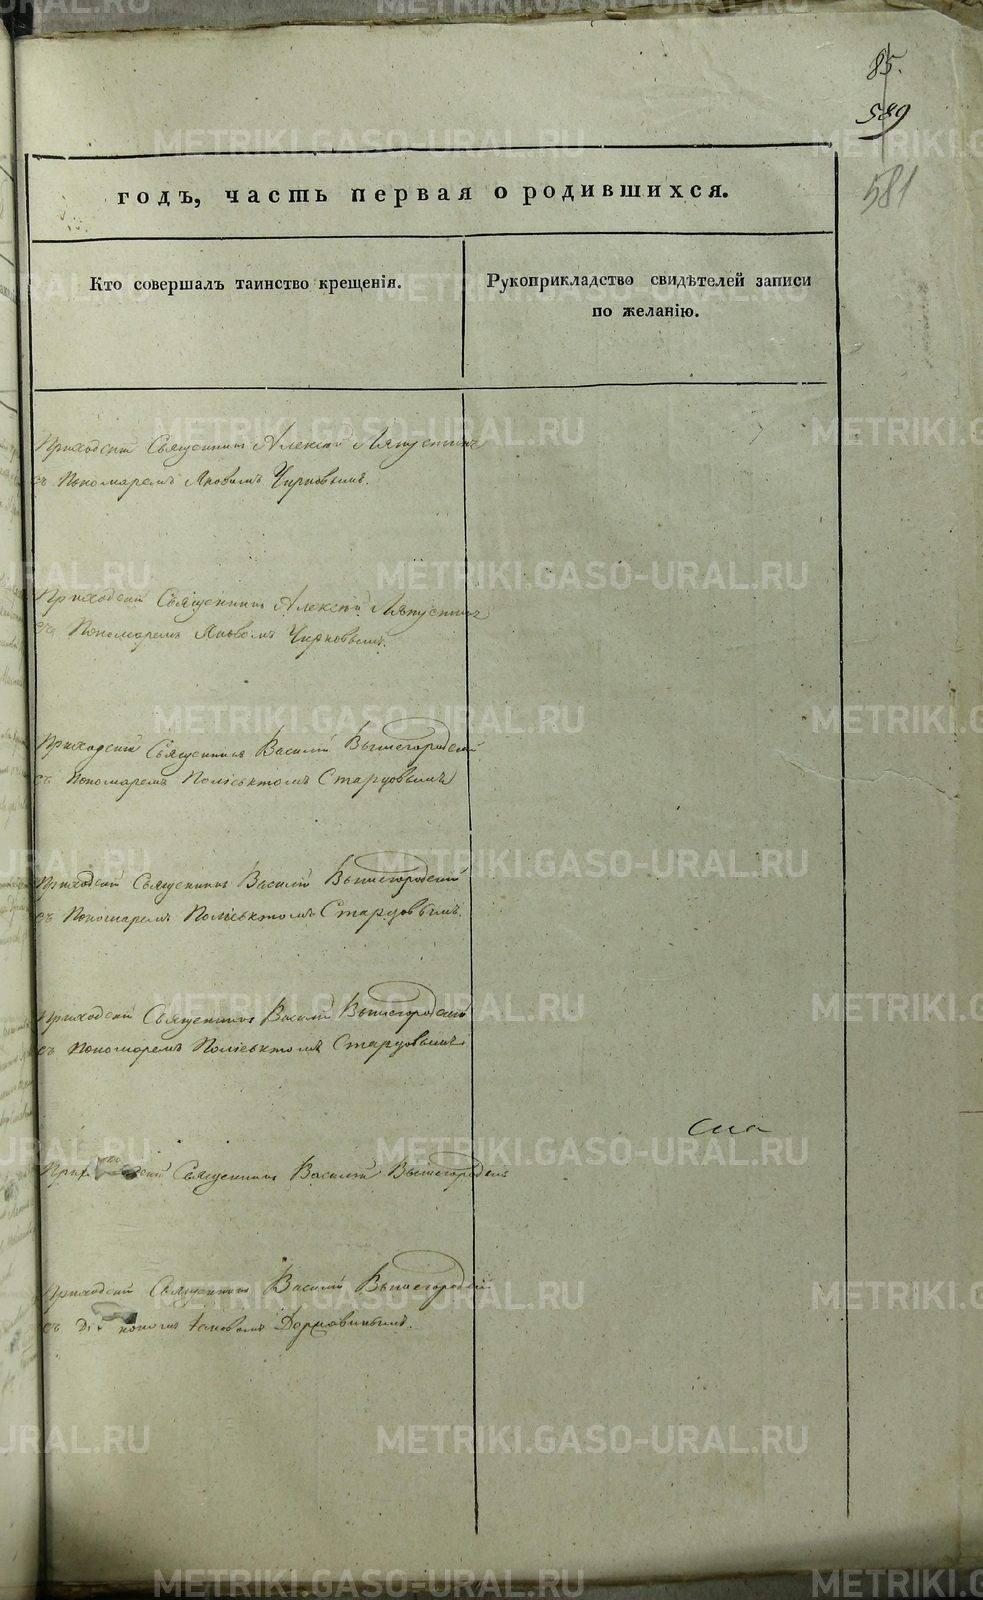 85.
589
581
годъ, часть первая о родившихся.
Кто совершалъ таинство крещенія.
Рукоприкладство свидѣтелей записи
по желанію.
Приходскій Священникъ Алексѣй Ляпустинъ
съ Пономаремъ Яковомъ
Приходскій Священникъ Алексѣй Ляпустинъ
съ Пономаремъ Яковомъ
Приходскій Священникъ Василій Вышегородскій
съ Пономаремъ Поліевктомъ Старцовымъ
Приходскій Священникъ Василій Вышегородскій
съ Пономаремъ Поліевктомъ Старцовымъ.
Приходскій Священникъ Василій Вышегородскій
съ Пономаремъ Поліевктомъ Старцовымъ
Священникъ Василій Вышегородскій
Приходскій Священникъ Василій Вышегородскій
съ
METRIKI.GASO-URAL.RU